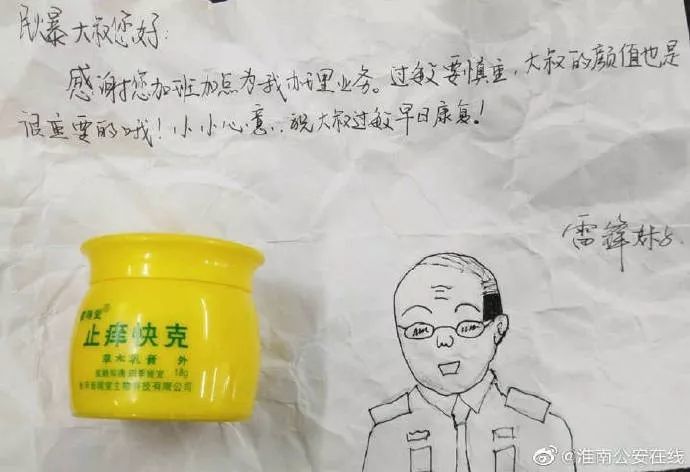 民爆大叔您好:
感谢您加班加点为我办理业务。过敏要慎重,大叔的颜值也是
很重要的哦!小小心意,祝大叔过敏早日康复!
雷锋妹子
止痒快克
草本乳膏 外
18g
@淮南公安在线